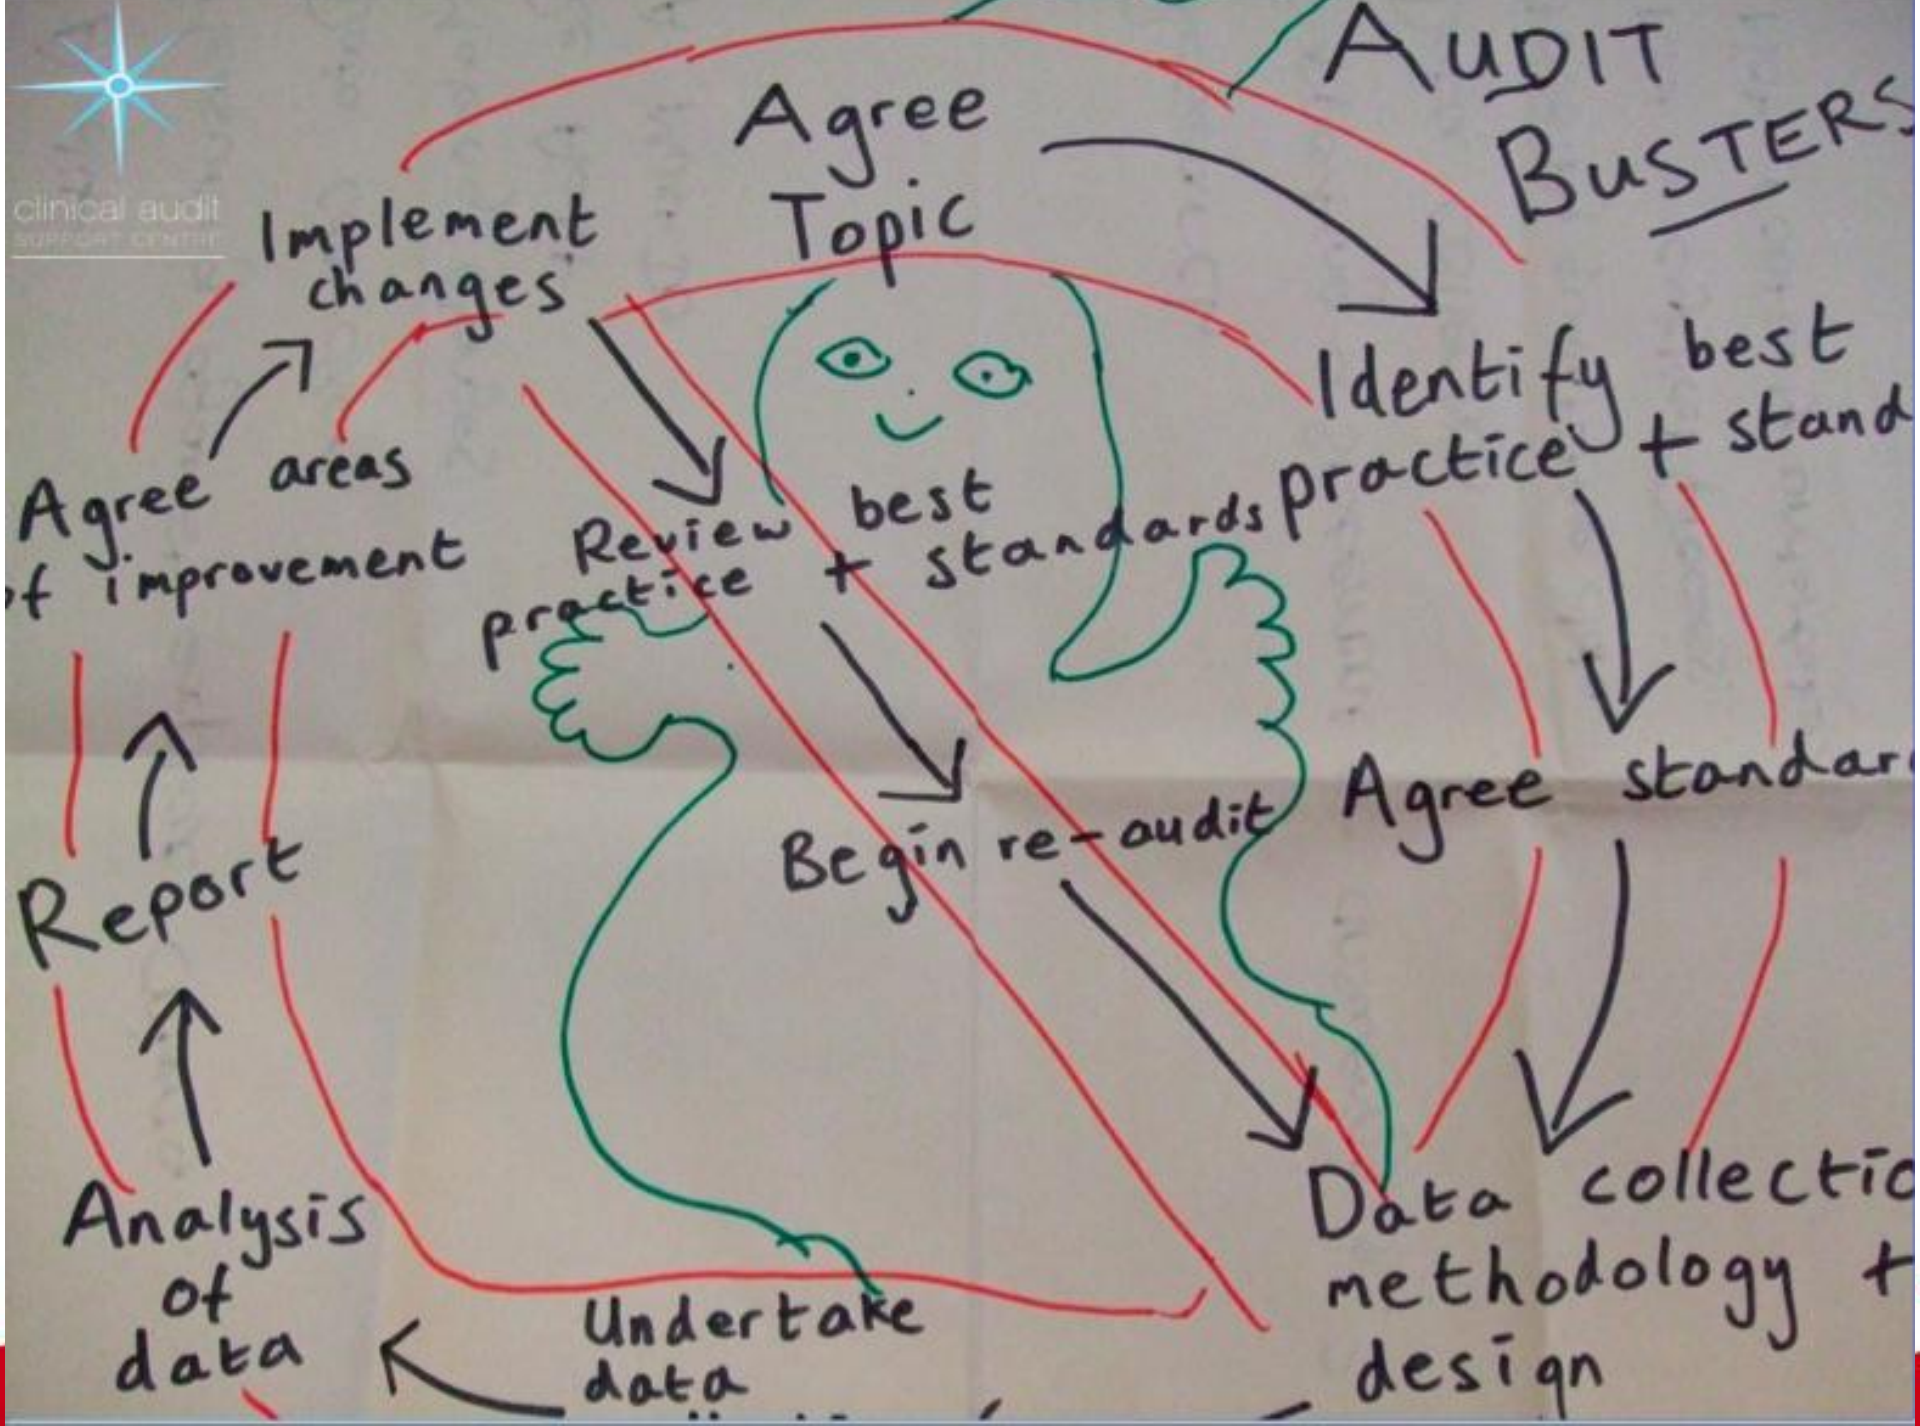 AUDIT
BUSTERS
clinical audit
SUPPORT CENTRE
Agree
Topic
Identify best
practice + stand
Agree standar
Data collectio
methodology +
design
Undertake
data
Analysis
of
data
Report
Agree areas
of improvement
Implement
changes
Review best
practice + standards
Begin re-audit